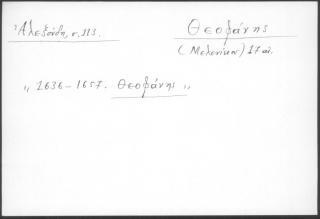 Ἀλεξούδη, σ. 113.
Θεοφάνης
(Μελενίκου) 17 αἰ.
„ 1636 – 1657. Θεοφάνης „